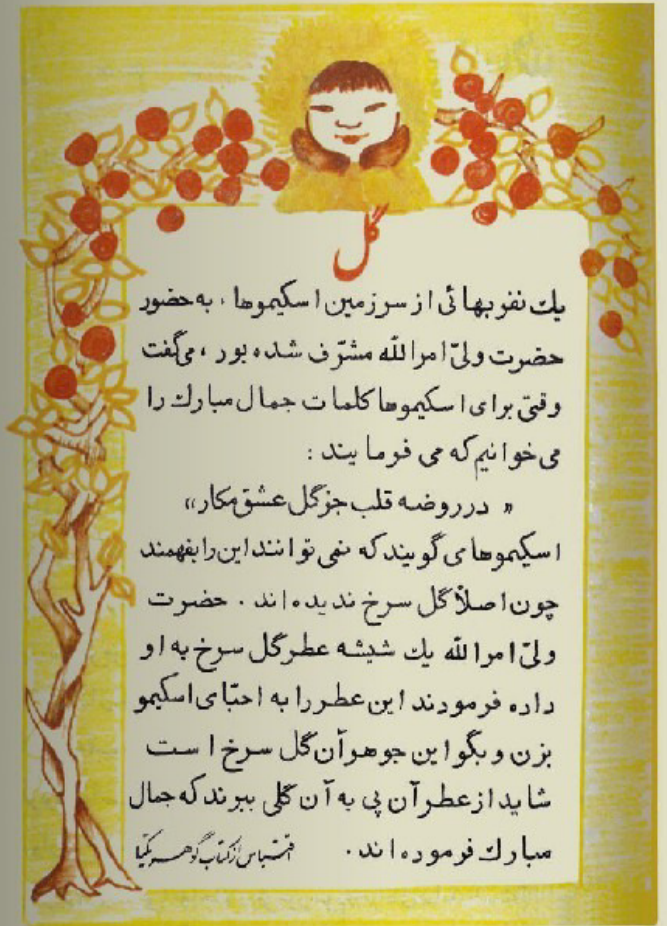 گل
یك نفر بهائی از سرزمین اسکیموها، به حضور
حضرت ولیّ امرالله مشرّف شده بور، می‌گفت
وقتی برای اسکیموها کلمات جمال مبارك را
می خوانیم که می فرمایند :
« در روضه قلب جز گل عشق مکار»
اسکیموها می گویند که نمی توانند این را بفهمند
چون اصلاً گل سرخ ندیده اند . حضرت
ولیّ امرالله یك شیشه عطر گل سرخ به او
داده فرمودند این عطر را به احبّای اسکیمو
بزن و بگو این جوهر آن گل سرخ است
شاید از عطر آن پی به آن گلی ببرند که جمال
مبارك فرموده اند . اقتباس از کتاب گوهر یکتا